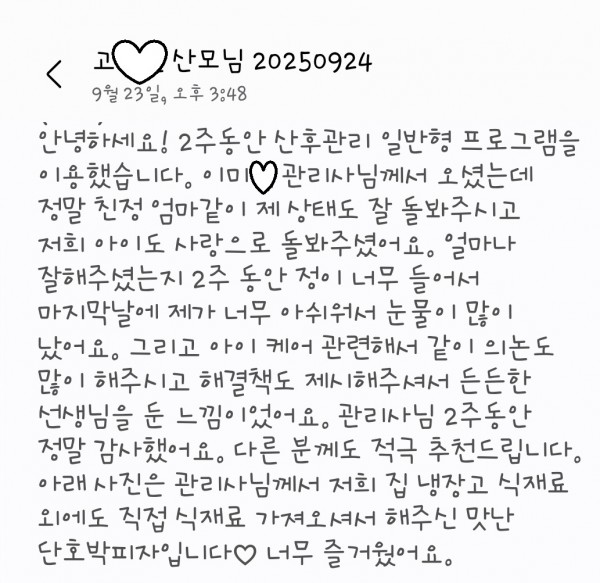 고♡ 산모님 20250924
9월 23일, 오후 3:48
안녕하세요! 2주동안 산후관리 일반형 프로그램을
이용했습니다. 이미♡관리사님께서 오셨는데
정말 친정 엄마같이 제 상태도 잘 돌봐주시고
저희 아이도 사랑으로 돌봐주셨어요. 얼마나
잘해주셨는지 2주 동안 정이 너무 들어서
마지막날에 제가 너무 아쉬워서 눈물이 많이
났어요. 그리고 아이 케어 관련해서 같이 의논도
많이 해주시고 해결책도 제시해주셔서 든든한
선생님을 둔 느낌이었어요. 관리사님 2주동안
정말 감사했어요. 다른 분께도 적극 추천드립니다.
아래 사진은 관리사님께서 저희 집 냉장고 식재료
외에도 직접 식재료 가져오셔서 해주신 맛난
단호박피자입니다♡ 너무 즐거웠어요.